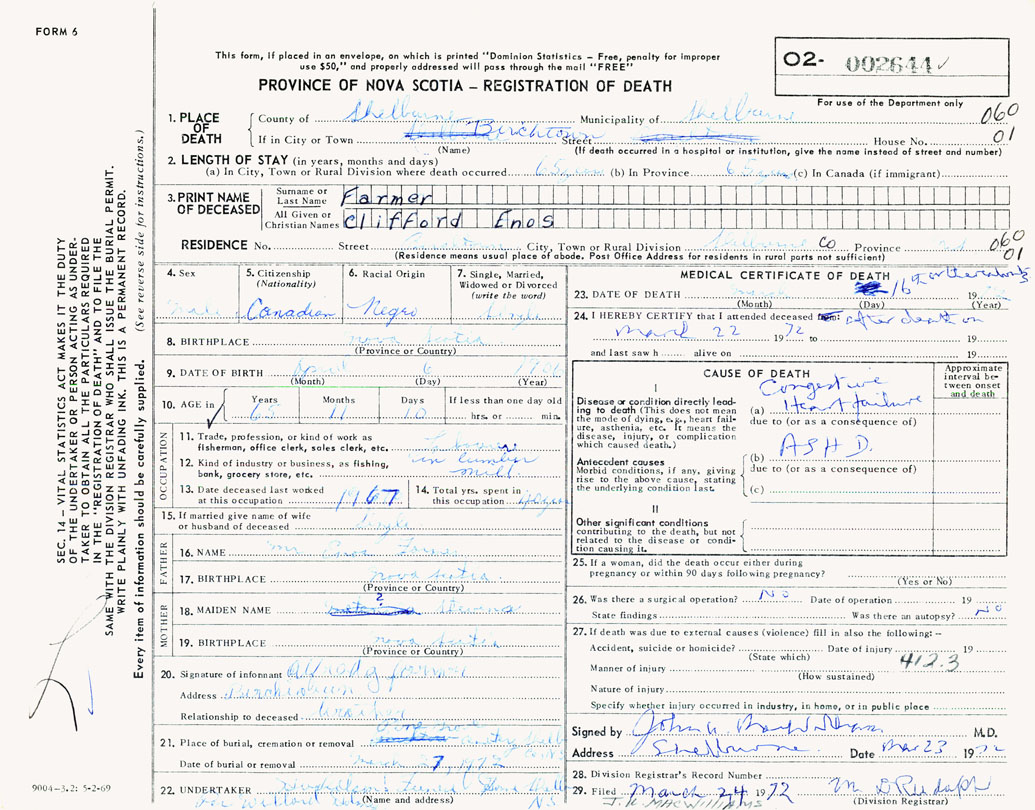 FORM 6
This form, if placed in an envelope, on which is printed "Dominion Statistics – Free, penalty for improper
use $50," and properly addressed will pass through the mail "FREE"
PROVINCE OF NOVA SCOTIA – REGISTRATION OF DEATH
O2- 002644
For use of the Department only
SEC. 14 – VITAL STATISTICS ACT MAKES IT THE DUTY
OF THE UNDERTAKER OR PERSON ACTING AS UNDER-
TAKER TO OBTAIN ALL THE PARTICULARS REQUIRED
IN THE "REGISTRATION OF DEATH" AND TO FILE THE
SAME WITH THE DIVISION REGISTRAR WHO SHALL ISSUE THE BURIAL PERMIT.
WRITE PLAINLY WITH UNFADING INK. THIS IS A PERMANENT RECORD.
Every item of information should be carefully supplied. (See reverse side for instructions.)
1. PLACE OF DEATH
County of Shelburne Municipality of Shelburne 060
If in City or Town Birchtown Street House No. 01
(Name) (If death occurred in a hospital or institution, give the name instead of street and number)
2. LENGTH OF STAY (in years, months and days)
(a) In City, Town or Rural Division where death occurred 65 years (b) In Province 65 yrs (c) In Canada (if immigrant)
3. PRINT NAME OF DECEASED
Surname or Last Name Farmer
All Given or Christian Names Clifford Enos
RESIDENCE No. Street City, Town or Rural Division Shelburne Co Province 060
(Residence means usual place of abode. Post Office Address for residents in rural parts not sufficient) 01
4. Sex Male
5. Citizenship (Nationality) Canadian
6. Racial Origin Negro
7. Single, Married, Widowed or Divorced (write the word) Single
8. BIRTHPLACE Nova Scotia
(Province or Country)
9. DATE OF BIRTH April 6
(Month) (Day) (Year)
10. AGE in Years 65 Months 11 Days 10 If less than one day old hrs. or min.
OCCUPATION
11. Trade, profession, or kind of work as
fisherman, office clerk, sales clerk, etc.
12. Kind of industry or business, as fishing, in lumber
bank, grocery store, etc. mill
13. Date deceased last worked at this occupation 1967
14. Total yrs. spent in this occupation
15. If married give name of wife
or husband of deceased Single
FATHER
16. NAME Mr Enos Farmer
17. BIRTHPLACE Nova Scotia
(Province or Country)
MOTHER
18. MAIDEN NAME ? Stevens
19. BIRTHPLACE Nova Scotia
(Province or Country)
20. Signature of informant
Address
Relationship to deceased Brother
21. Place of burial, cremation or removal
Date of burial or removal March 1972
22. UNDERTAKER
(Name and address)
N S
MEDICAL CERTIFICATE OF DEATH
23. DATE OF DEATH March 16th or thereabouts 19 72
(Month) (Day) (Year)
24. I HEREBY CERTIFY that I attended deceased after death on
March 22 1972 to 19
and last saw h alive on 19
CAUSE OF DEATH
Approximate interval between onset and death
I
Disease or condition directly lead-
ing to death (This does not mean
the mode of dying, e.g., heart fail-
ure, asthenia, etc. It means the
disease, injury, or complication
which caused death.)
(a) Congestive Heart failure
due to (or as a consequence of)
Antecedent causes
Morbid conditions, if any, giving
rise to the above cause, stating
the underlying condition last.
(b) ASHD.
due to (or as a consequence of)
(c)
II
Other significant conditions
contributing to the death, but not
related to the disease or condi-
tion causing it.
25. If a woman, did the death occur either during
pregnancy or within 90 days following pregnancy?
(Yes or No)
26. Was there a surgical operation? No Date of operation 19
State findings Was there an autopsy? No
27. If death was due to external causes (violence) fill in also the following: –
Accident, suicide or homicide? Date of injury 19
(State which) 412.3
Manner of injury
(How sustained)
Nature of injury
Specify whether injury occurred in industry, in home, or in public place
Signed by John M.D.
Address Shelburne. Date Mar 23 1972
28. Division Registrar's Record Number
29. Filed March 24 1972
(Division Registrar)
9004-3.2: 5-2-69